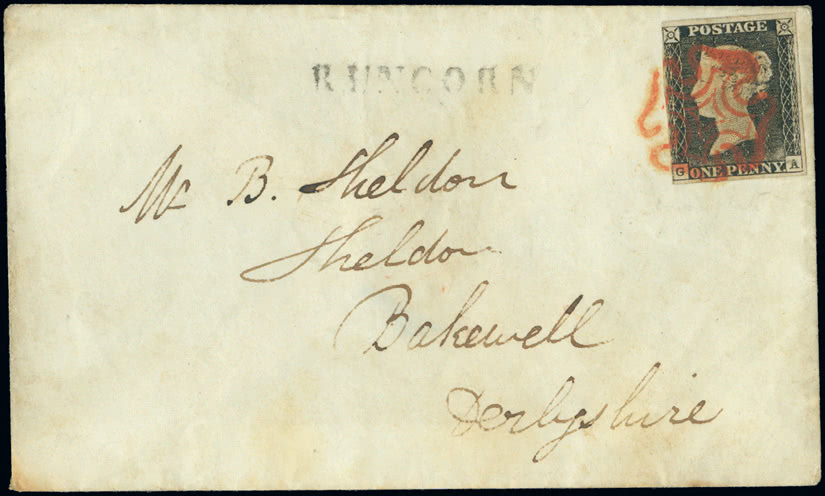 POSTAGE
RUNCORN
G ONE PENNY. A
Mr B. Sheldon
Sheldon
Bakewell
Derbyshire